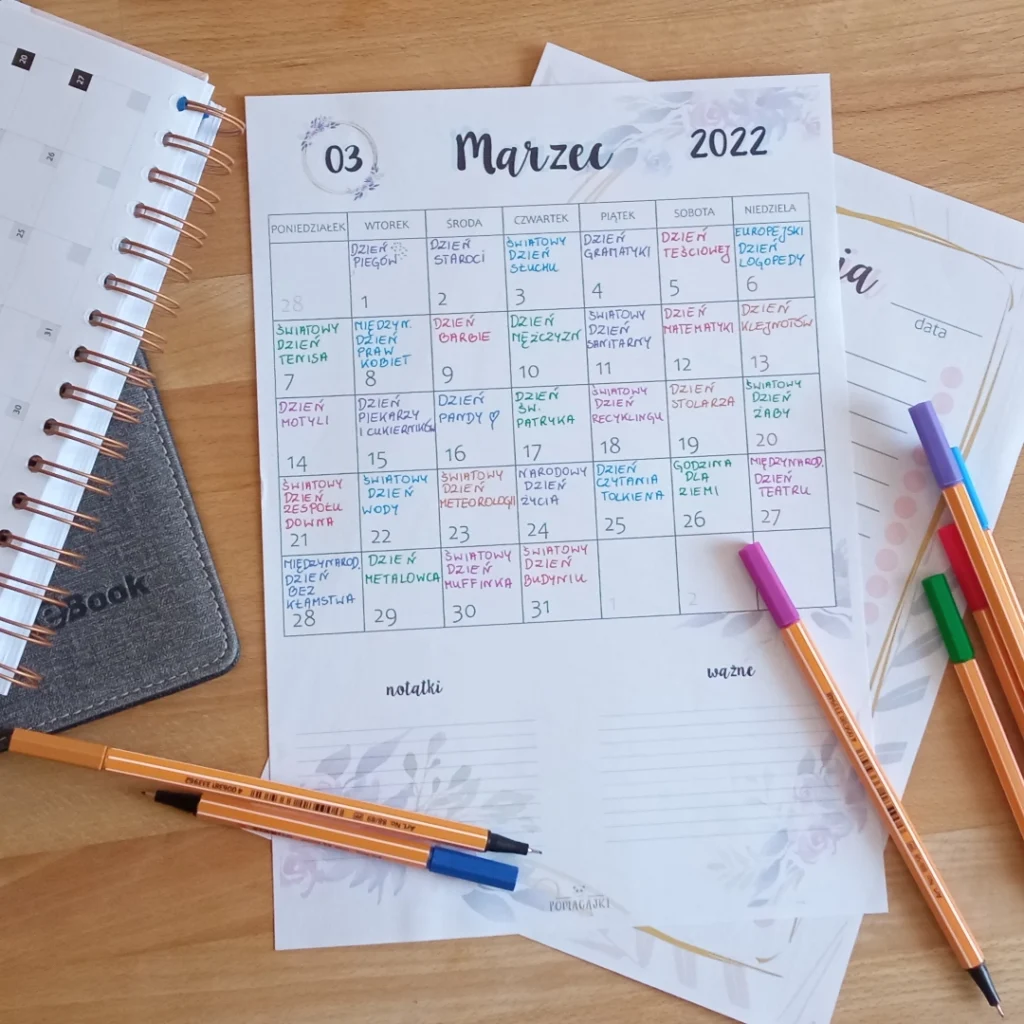 20
27
26
25
31
30
eBook
03
Marzec
2022
PONIEDZIAŁEK WTOREK ŚRODA CZWARTEK PIĄTEK SOBOTA NIEDZIELA
28
DZIEŃ
PIEGÓW
1
DZIEŃ
STAROCI
2
ŚWIATOWY
DZIEŃ
SŁUCHU
3
DZIEŃ
GRAMATYKI
4
DZIEŃ
TEŚCIOWEJ
5
EUROPEJSKI
DZIEŃ
LOGOPEDY
6
ŚWIATOWY
DZIEŃ
TENISA
7
MIĘDZYN.
DZIEŃ
PRAW
KOBIET
8
DZIEŃ
BARBIE
9
DZIEŃ
MĘŻCZYZN
10
ŚWIATOWY
DZIEŃ
SANITARNY
11
DZIEŃ
MATEMATYKI
12
DZIEŃ
KLEJNOTÓW
13
DZIEŃ
MOTYLI
14
DZIEŃ
PIEKARZY
I CUKIERNIKÓW
15
DZIEŃ
PANDY ♡
16
DZIEŃ
ŚW.
PATRYKA
17
ŚWIATOWY
DZIEŃ
RECYKLINGU
18
DZIEŃ
STOLARZA
19
ŚWIATOWY
DZIEŃ
ŻABY
20
ŚWIATOWY
DZIEŃ
ZESPOŁU
DOWNA
21
ŚWIATOWY
DZIEŃ
WODY
22
ŚWIATOWY
DZIEŃ
METEOROLOGII
23
NARODOWY
DZIEŃ
ŻYCIA
24
DZIEŃ
CZYTANIA
TOLKIENA
25
GODZINA
DLA
ZIEMI
26
MIĘDZYNAROD.
DZIEŃ
TEATRU
27
MIĘDZYNAROD.
DZIEŃ
BEZ
KŁAMSTWA
28
DZIEŃ
METALOWCA
29
ŚWIATOWY
DZIEŃ
MUFFINKA
30
ŚWIATOWY
DZIEŃ
BUDYNIU
31
1
2
notatki
ważne
POMAGAJKI
data